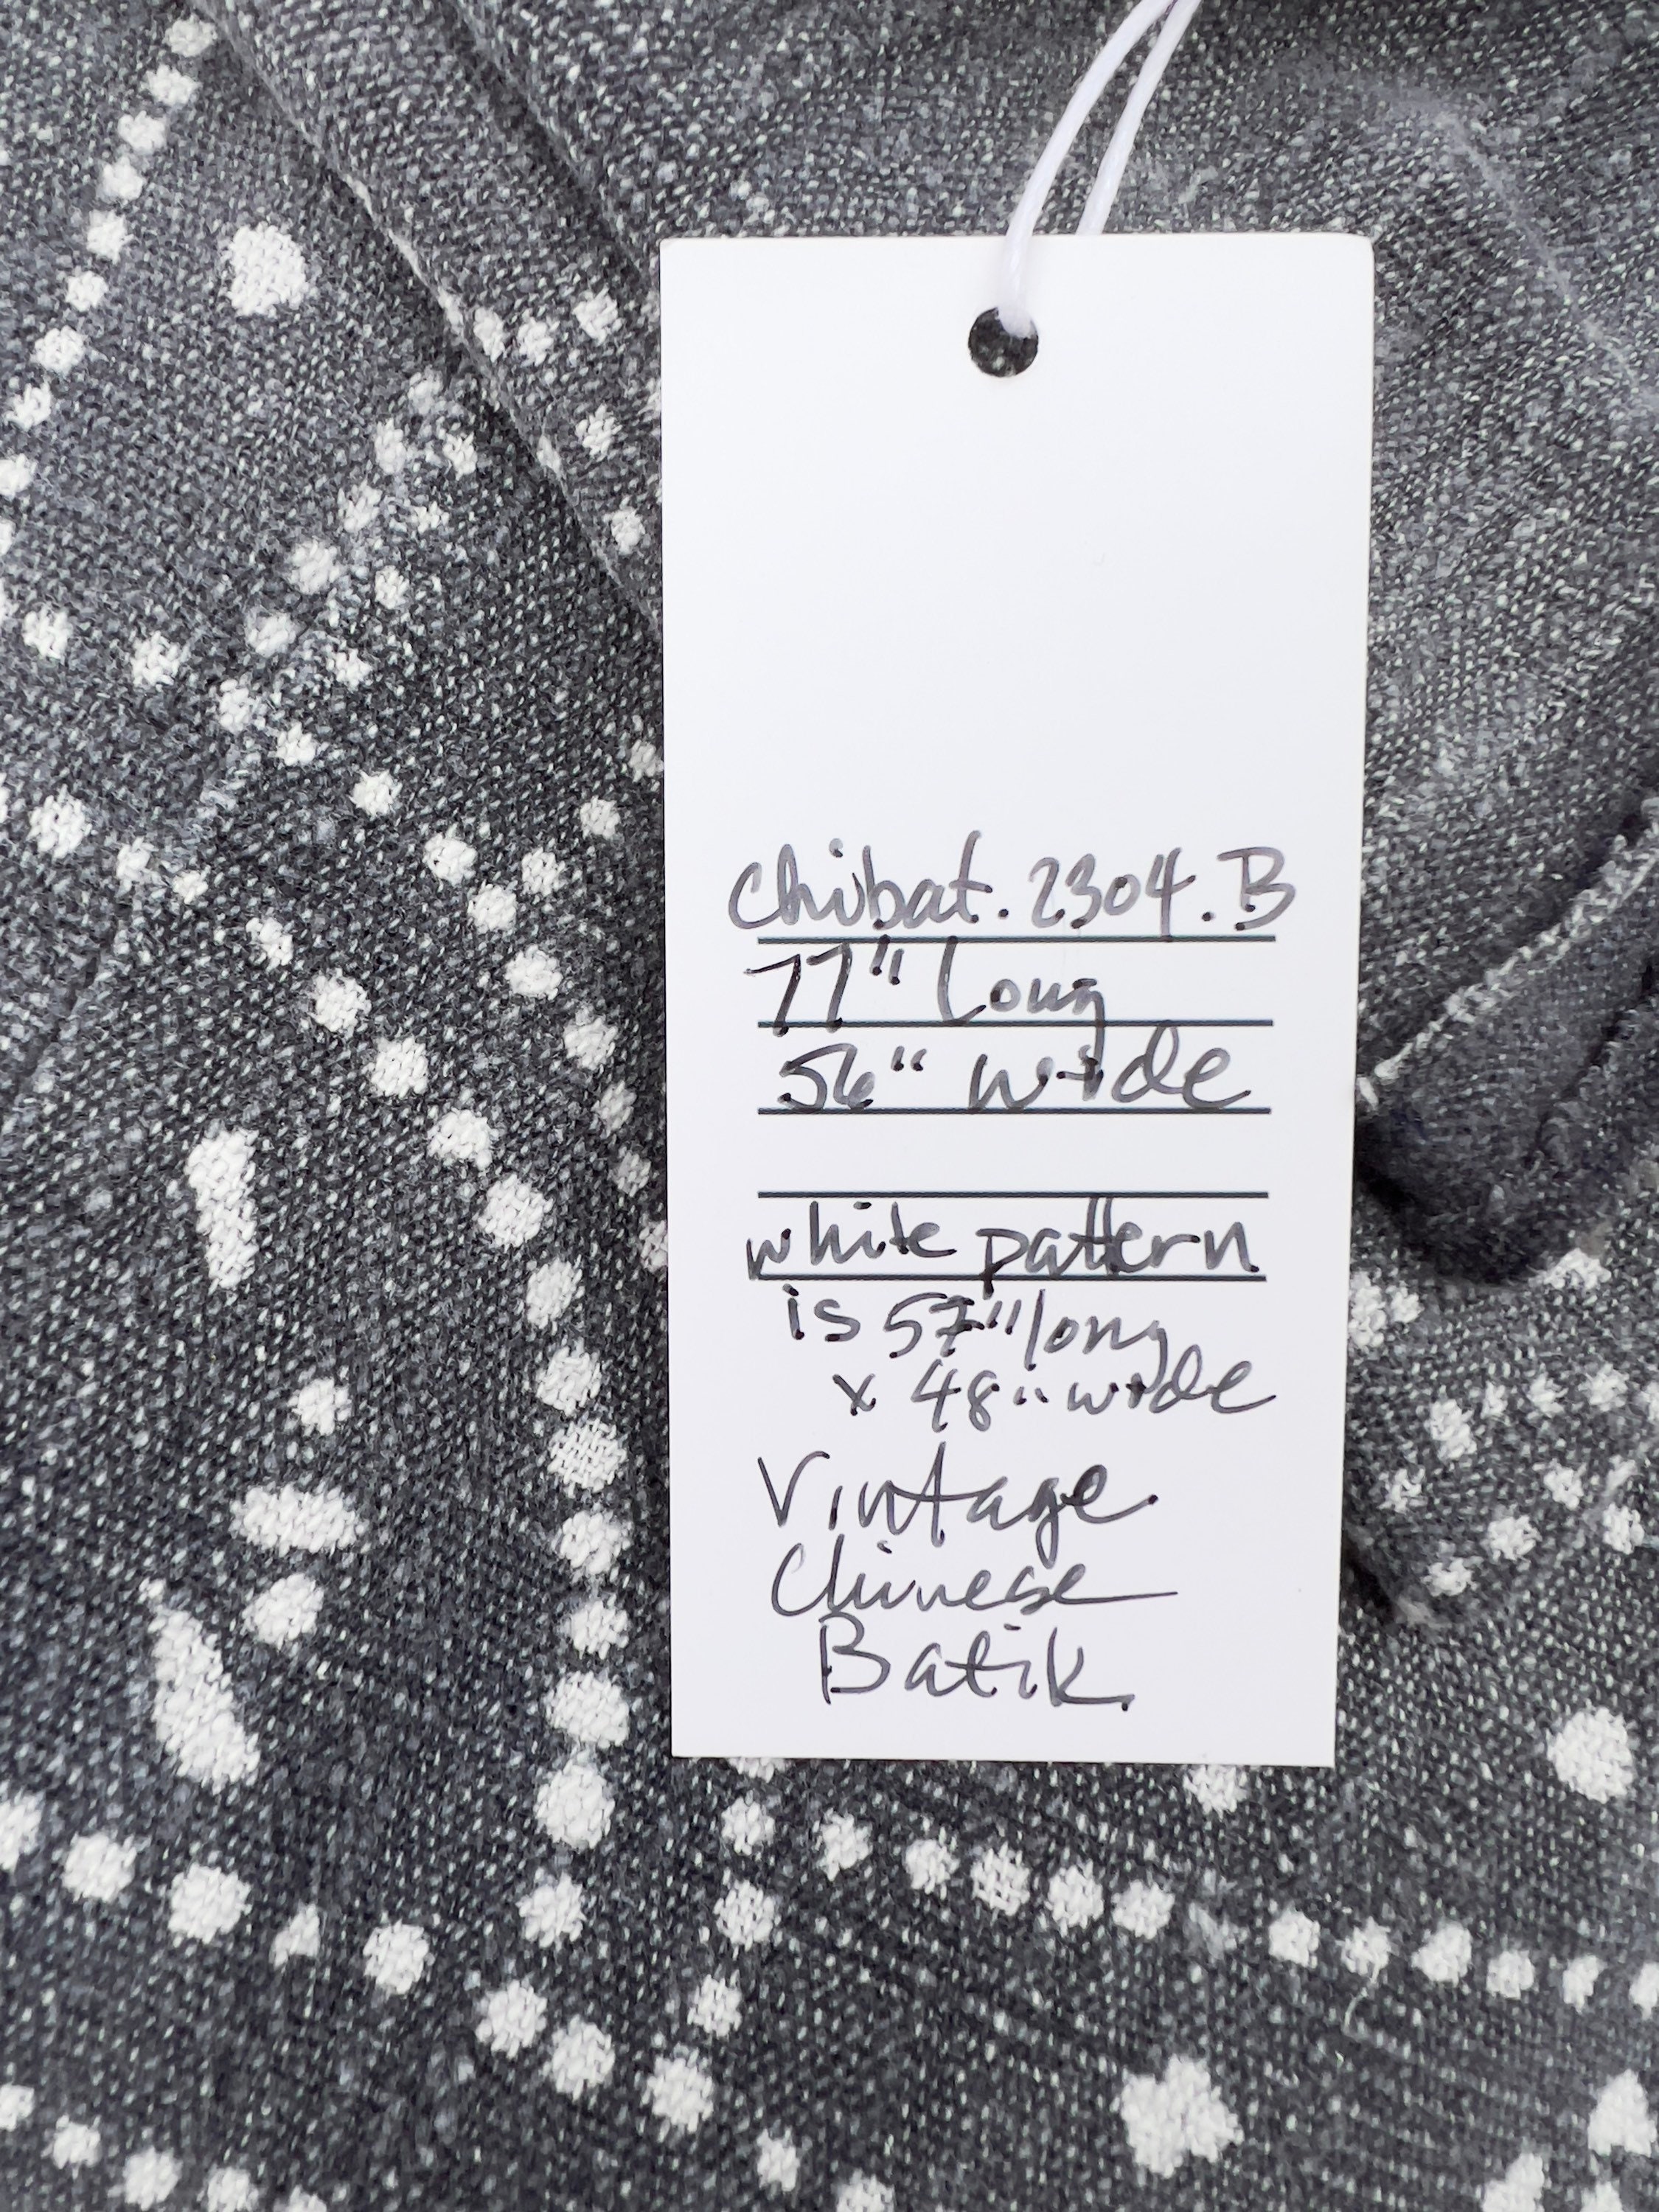 Chibat. 2304. B
77" Long
56" wide
white pattern
is 57" long
x 48" wide
Vintage
Chinese
Batik